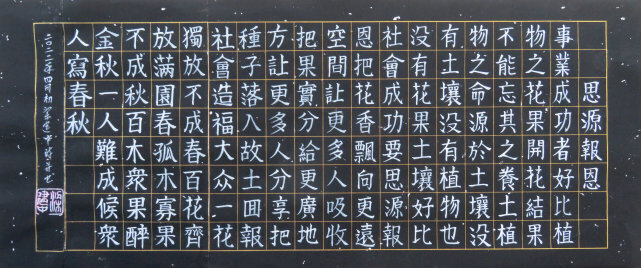 思源報恩
事業成功者好比植
物之花果開花結果
不能忘其之養土植
物之命源於土壤沒
有土壤沒有植物也
没有花果土壤好比
社會成功要思源報
恩把花香飄向更遠
空間让更多人吸收
把果實分給更廣地
方让更多人分享把
種子落入故土囬報
社會造福大众一花
獨放不成春百花齊
放满園春孤木寡果
不成秋百木衆果醉
金秋一人難成候衆
人寫春秋
二〇二二年四月初